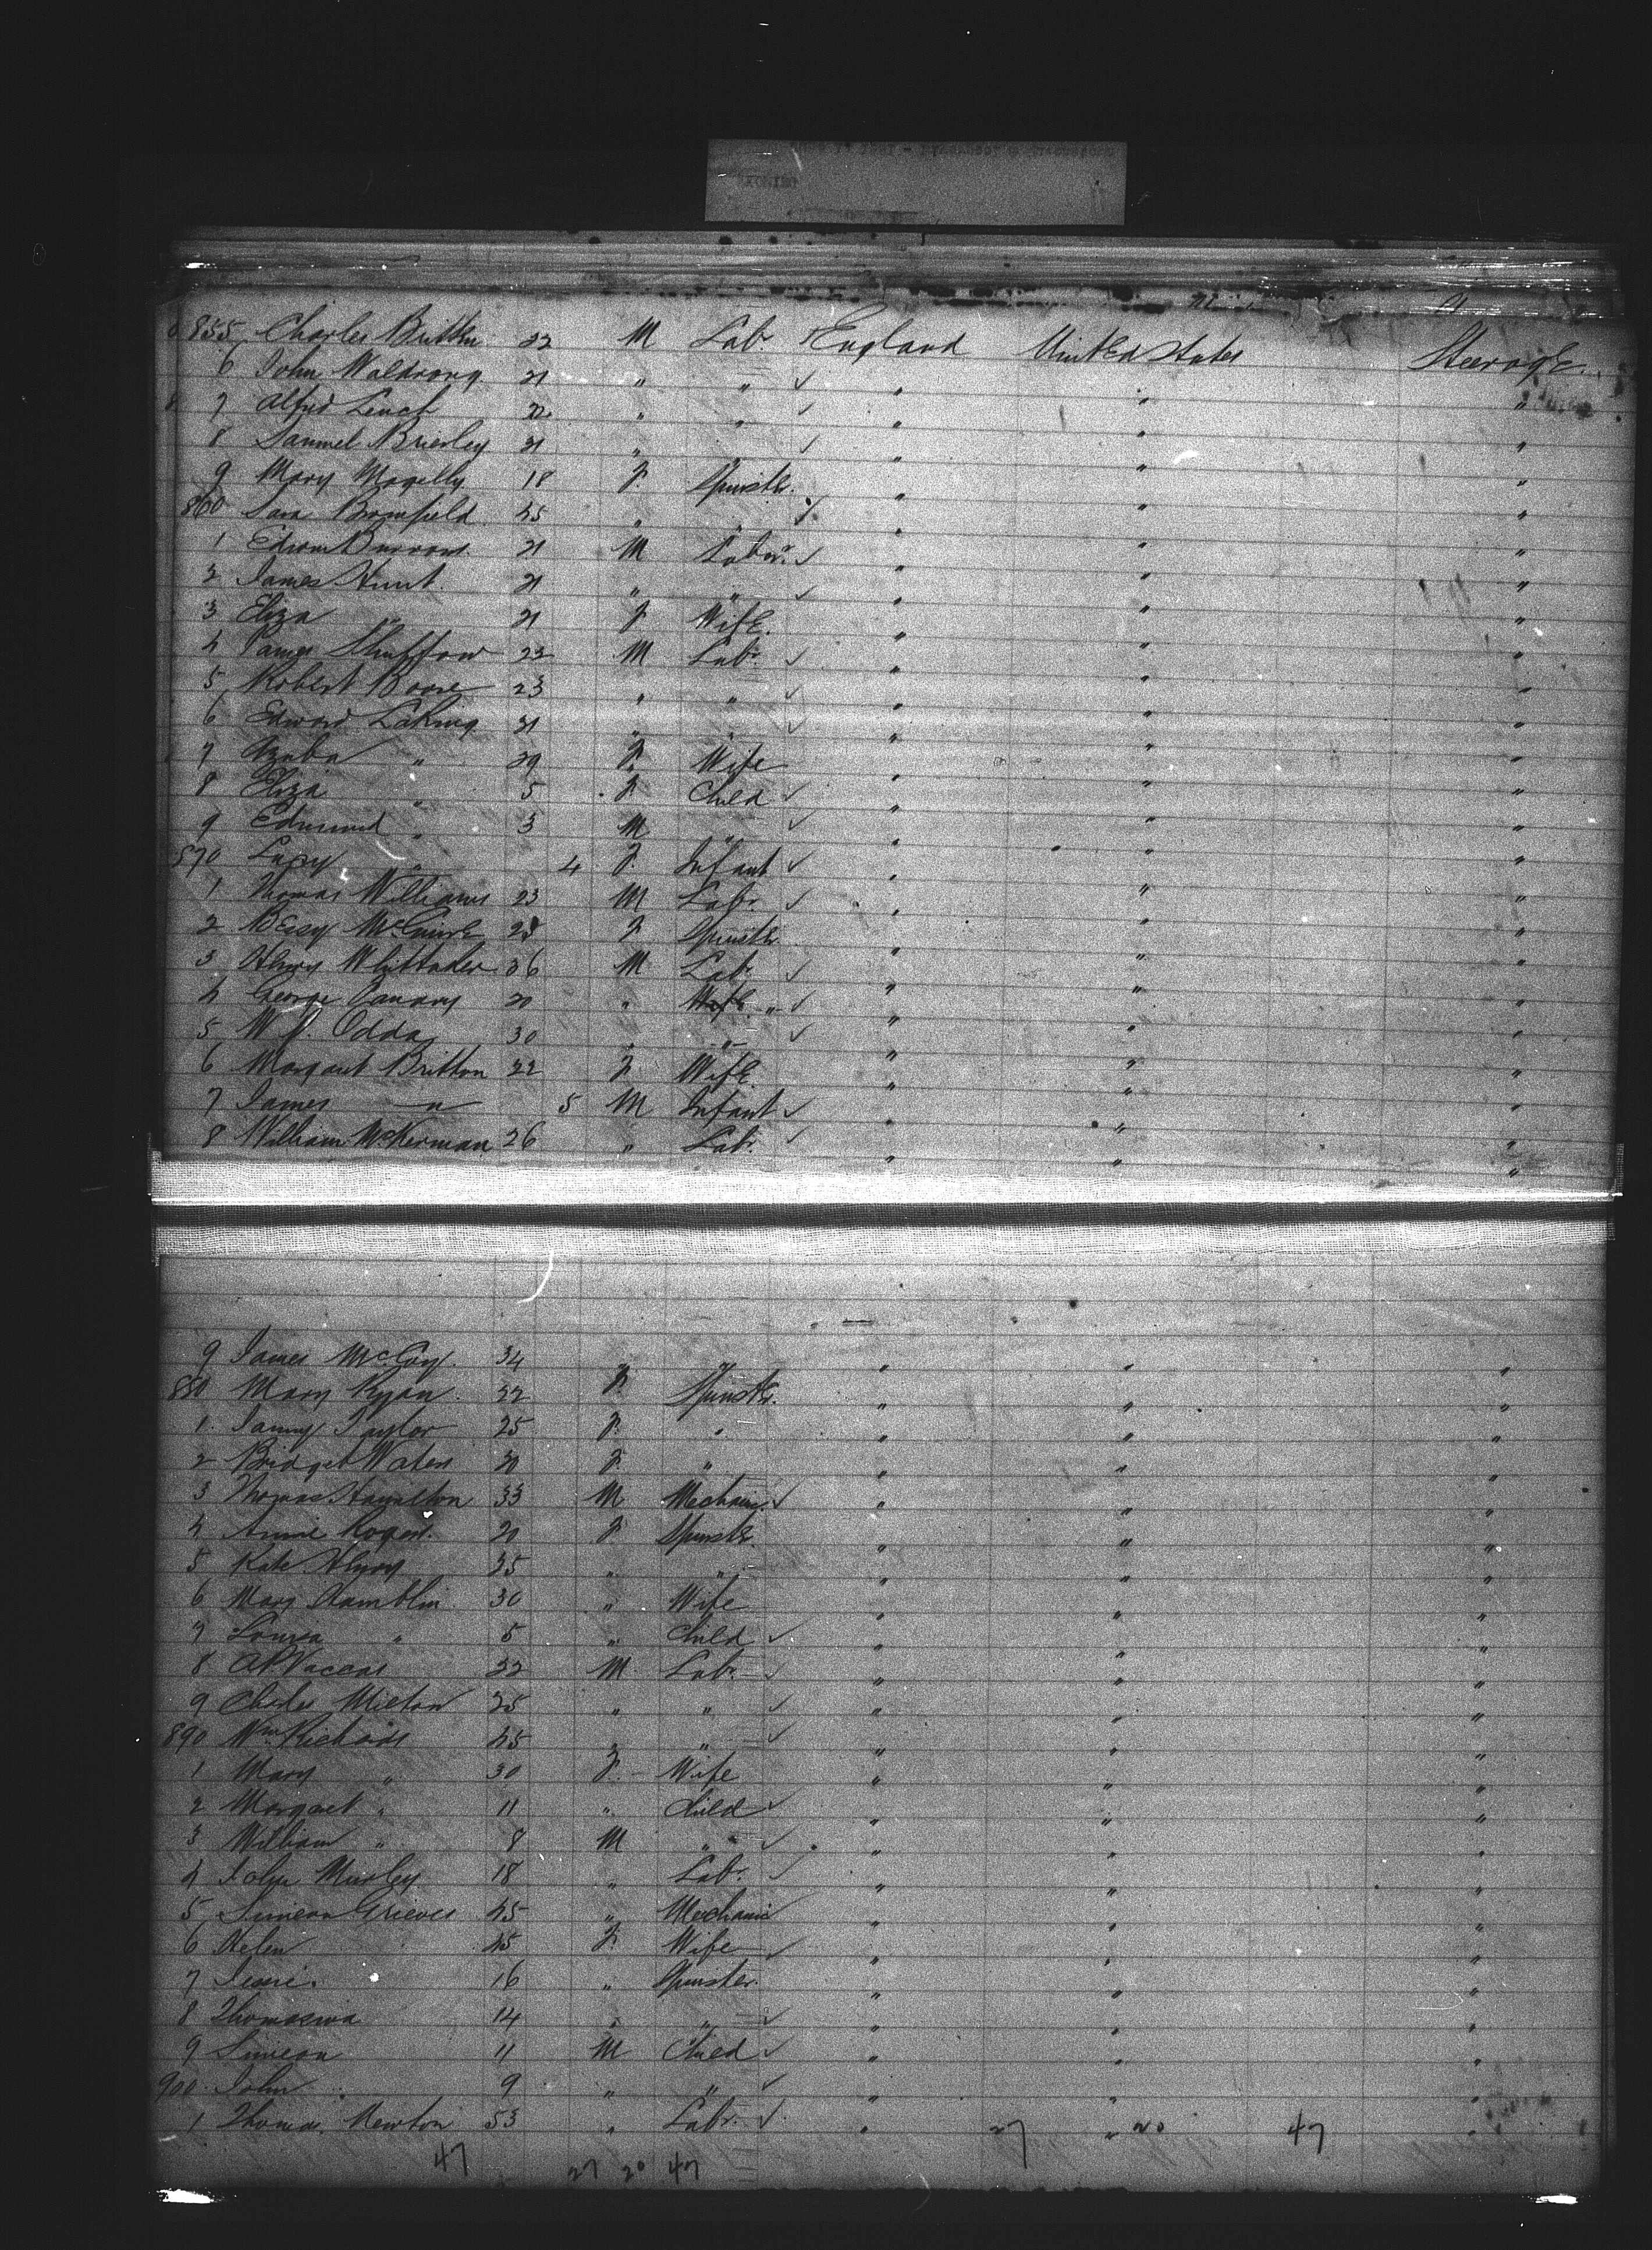 855 Charles Britton 22 M Lab. England United States Steerage
6 John Waldrong 21 " " " " "
7 Alfred Leach 22 " " " " "
8 Samuel Brierley 21 " " " " "
9 Mary Magelly 18 F Spinstr. " " "
860 Sara Bromfield 45 " " " " "
1 Edwin Burrows 21 M Labr. " " "
2 James Hunt 21 " " " " "
3 Eliza " 21 F Wife " " "
4 James 22 M Labr. " " "
5 Robert Boare 23 " " " " "
6 Edward Laking 31 " " " " "
7 " 29 F. Wife " " "
8 Eliza " 5 F Child " " "
9 Edmund " 3 M " " " "
870 Lucy " 4 F. Infant " " "
1 Thomas Williams 23 M Labr. " " "
2 Bessy 23 F Spinstr " " "
3 Henry Whittaker 36 M Labr. " " "
4 George Canary 20 " " " " "
5 W. J. Odda 30 " " " " "
6 Margaret Britton 22 F Wife " " "
7 James " 5 M Infant " " "
8 William McKerman 26 " Lab. " " "
9 James McCoy 34 " " " " "
880 Mary Ryan 22 F Spinstr. " " "
1 Taylor 25 F. " " " "
2 Bridget Waters 20 F. " " " "
3 Thomas Hamilton 33 M Mechanic " " "
4 Annie Rogers 20 F Spinstr " " "
5 Kate Henry 35 " " " " "
6 Mary Hamblin 30 " Wife " " "
7 Louisa " 5 " Child " " "
8 32 M Labr. " " "
9 Charles Milton 25 " " " " "
890 Wm Richards 45 " " " " "
1 Mary " 30 F. Wife " " "
2 Margaret " 11 " Child " " "
3 William " 8 M " " " "
4 John Munley 18 " Labr. " " "
5 Simeon Grieves 45 " Mechanic " " "
6 Helen 45 F. Wife " " "
7 Jessie 16 " Spinster " " "
8 Thomasina 14 " " " " "
9 Simeon 11 M Child " " "
900 John 9 " " " " "
1 Thomas Newton 53 " Labr. " 27 " 20 47 "
47 27 20 47